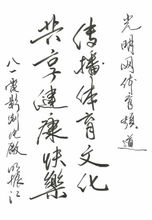 光明网体育频道
传播体育文化
共享健康快樂
八一电影制片厂